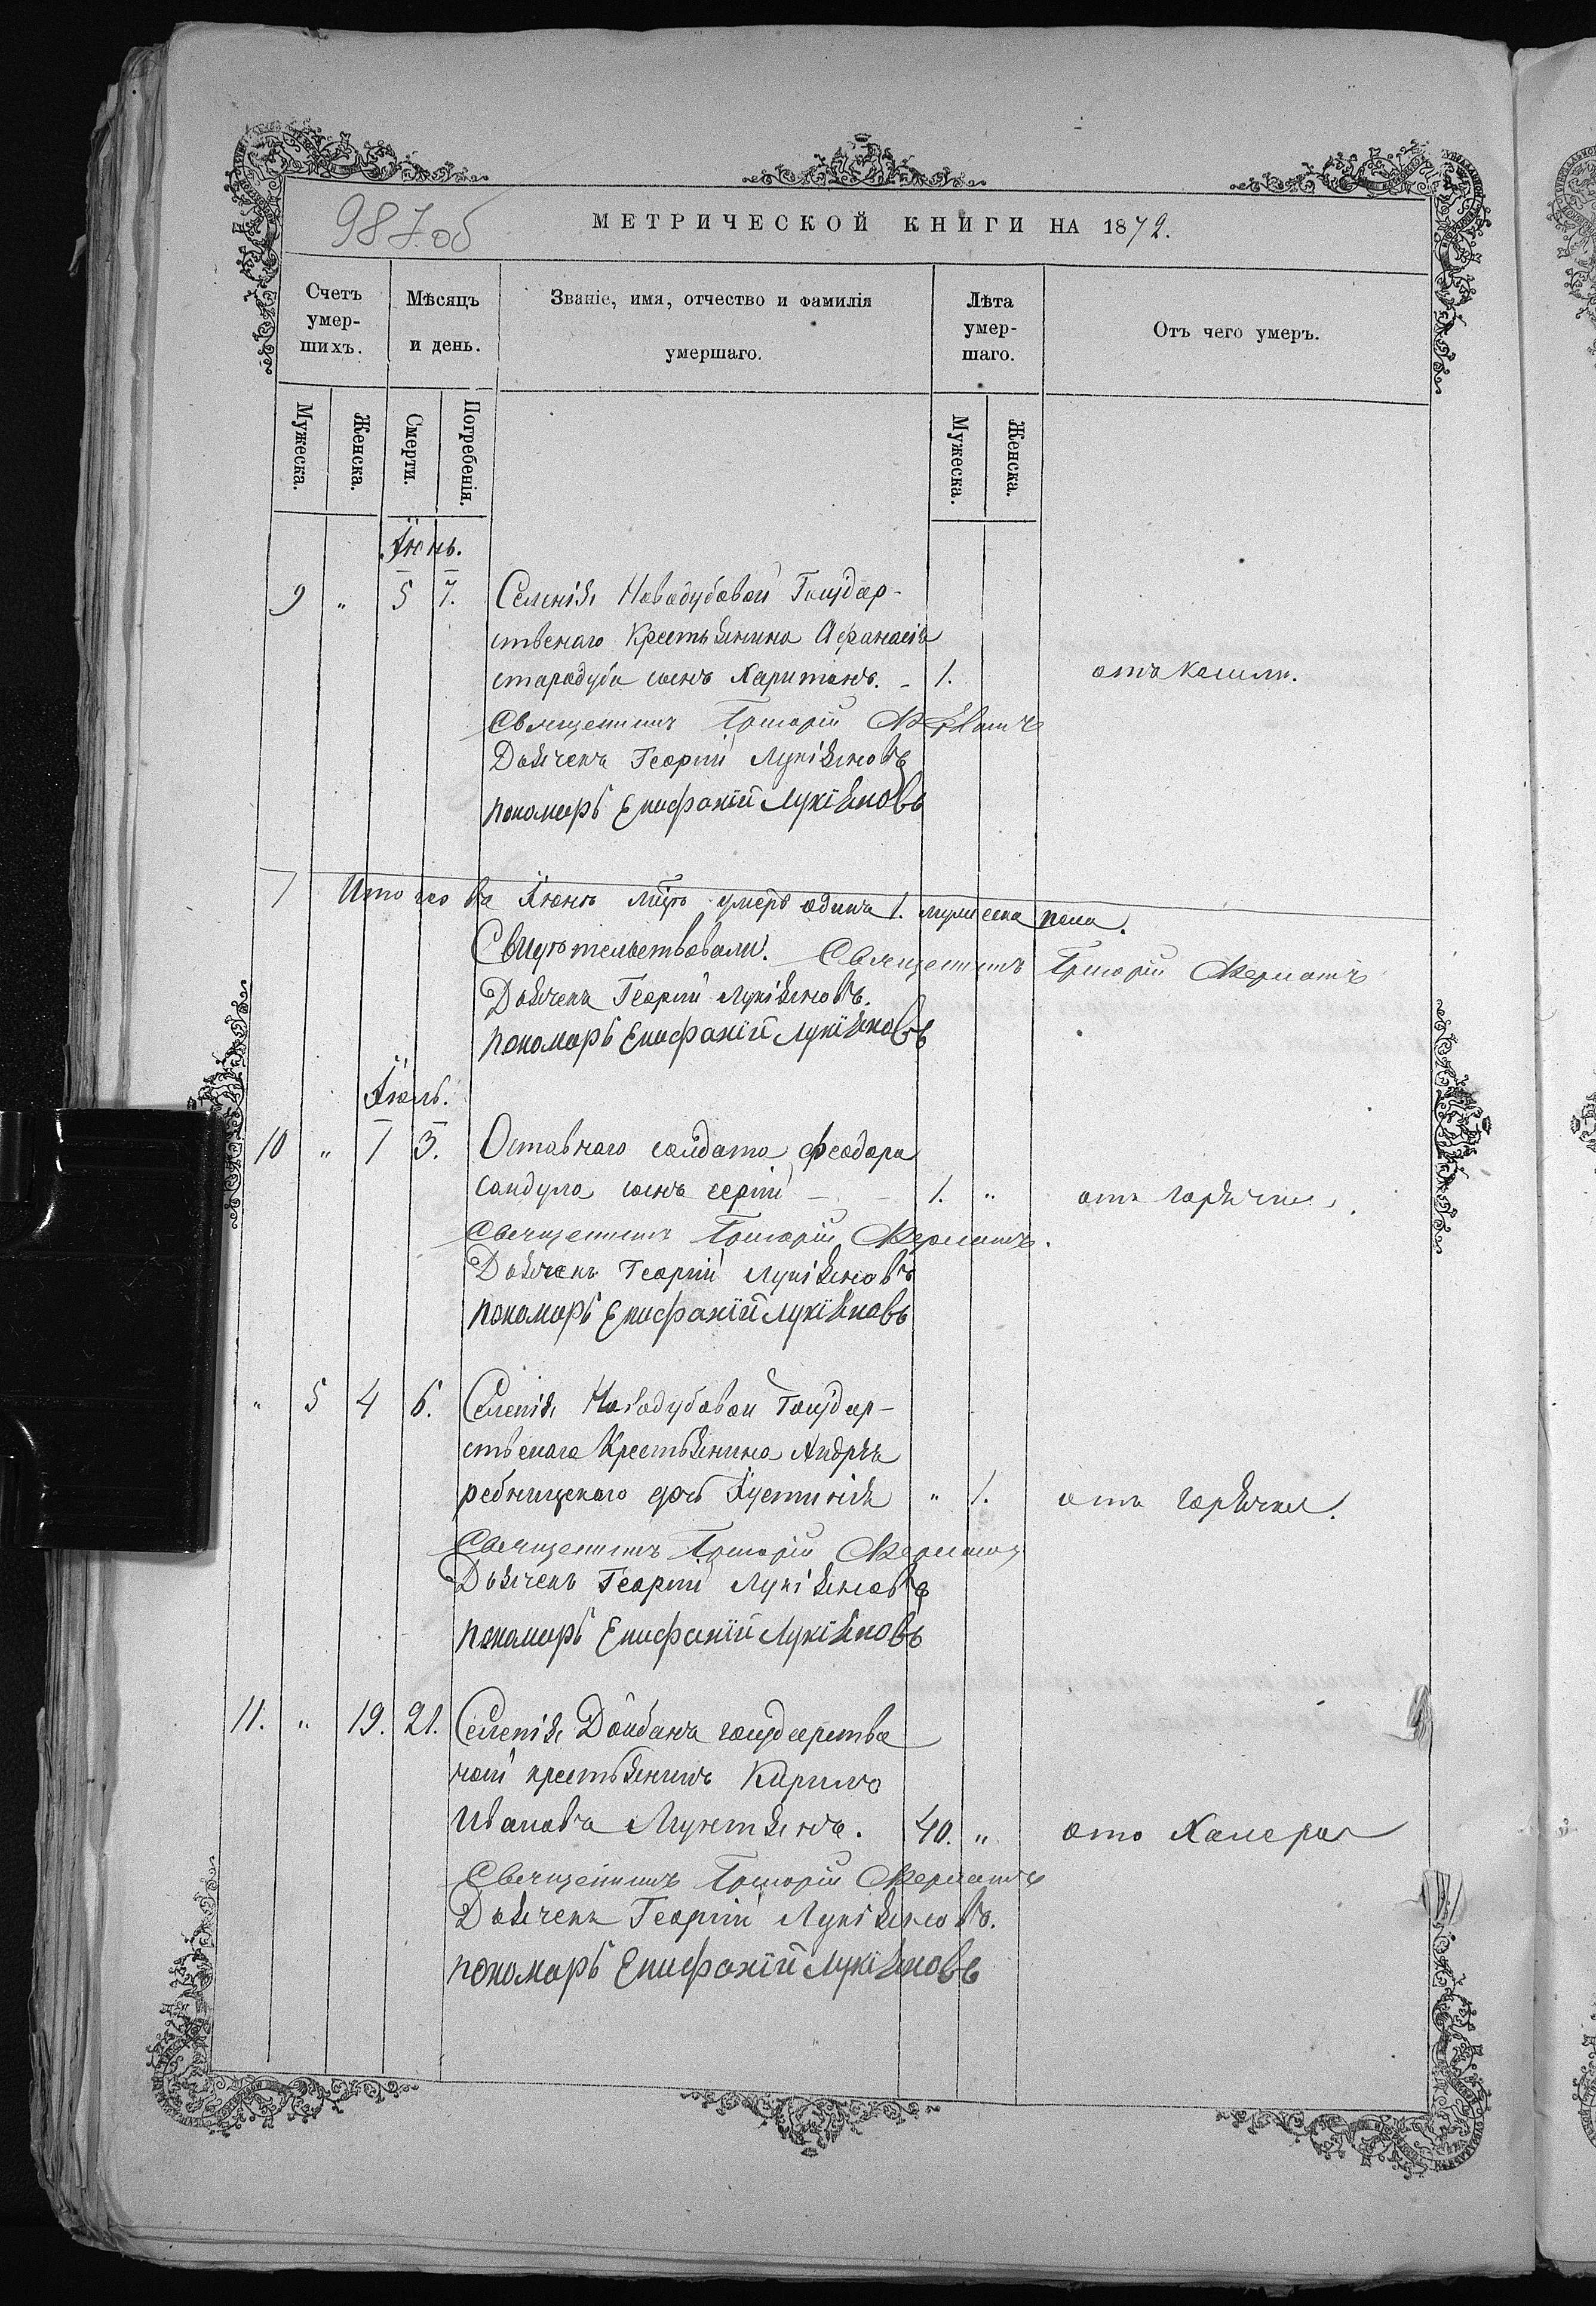 987 об
МЕТРИЧЕСКОЙ КНИГИ НА 1872.
Счетъ умер-шихъ.
Мѣсяцъ и день.
Званіе, имя, отчество и фамилія умершаго.
Лѣта умер-шаго.
Отъ чего умеръ.
Мужеска.
Женска.
Смерти.
Погребенія.
Мужеска.
Женска.
Іюнь.
9 " 5 7. Селенія Новодубовой Государ-
ственаго Крестьянина Афанасія
стародуба сынъ Харитонъ. - 1. отъ кашли.
Священникъ Григорій
Дьячекъ Георгій Лукіяновъ
пономарь Епифаній Лукіяновъ
Итого въ Іюнѣ мцѣ умеръ одинъ 1. мужеска пола.
Свидѣтельствовали. Священникъ Григорій
Дьячекъ Георгій Лукіяновъ.
пономарь Епифаній Лукіяновъ
Іюль.
10 " 1 3. Оставного солдата Феодора
сандула сынъ сергій - - 1. " отъ горячки.
Священникъ Григорій
Дьячекъ Георгій Лукіяновъ
пономарь Епифаній Лукіяновъ
" 5 4 6. Селенія Новодубовой Государ-
ственаго Крестьянина Андрѣя
ребницкого дочь Іустинія " 1. отъ горячки.
Священникъ Григорій
Дьячекъ Георгій Лукіяновъ
пономарь Епифаній Лукіяновъ
11. " 19. 21. Селенія Дойбанъ государстве
ной крестьянинъ Кирило
Ивановъ Мунтянъ. 40. " отъ Халеры
Священникъ Григорій
Дьячекъ Георгій Лукіяновъ.
пономарь Епифаній Лукіяновъ